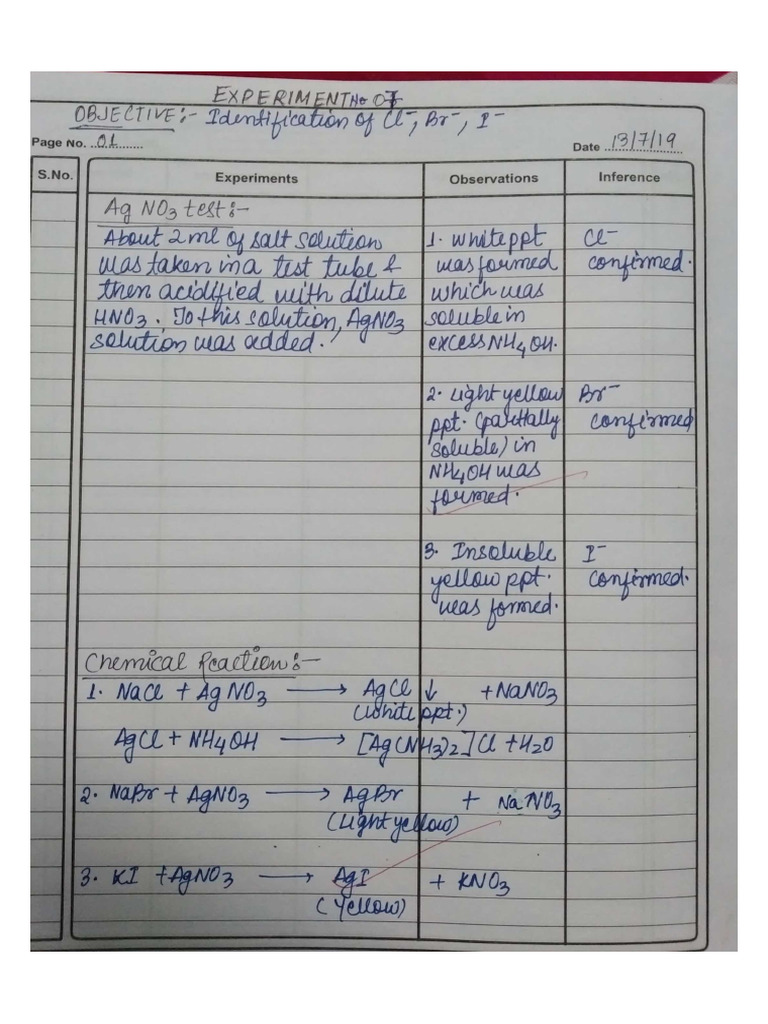 EXPERIMENT No 07
OBJECTIVE:- Identification of Cl⁻, Br⁻, I⁻
Page No. 01
Date 13/7/19
S.No. Experiments Observations Inference
AgNO₃ test:-
About 2ml of salt solution
was taken in a test tube &
then acidified with dilute
HNO₃. To this solution, AgNO₃
solution was added.
1. White ppt
was formed
which was
soluble in
excess NH₄OH.
Cl⁻
confirmed.
2. Light yellow
ppt. (partially
soluble) in
NH₄OH was
formed.
Br⁻
confirmed
3. Insoluble
yellow ppt.
was formed.
I⁻
confirmed.
Chemical Reaction:-
1. NaCl + AgNO₃ → AgCl ↓ + NaNO₃
(White ppt.)
AgCl + NH₄OH → [Ag(NH₃)₂]Cl + H₂O
2. NaBr + AgNO₃ → AgBr + NaNO₃
(Light yellow)
3. KI + AgNO₃ → AgI + KNO₃
(Yellow)